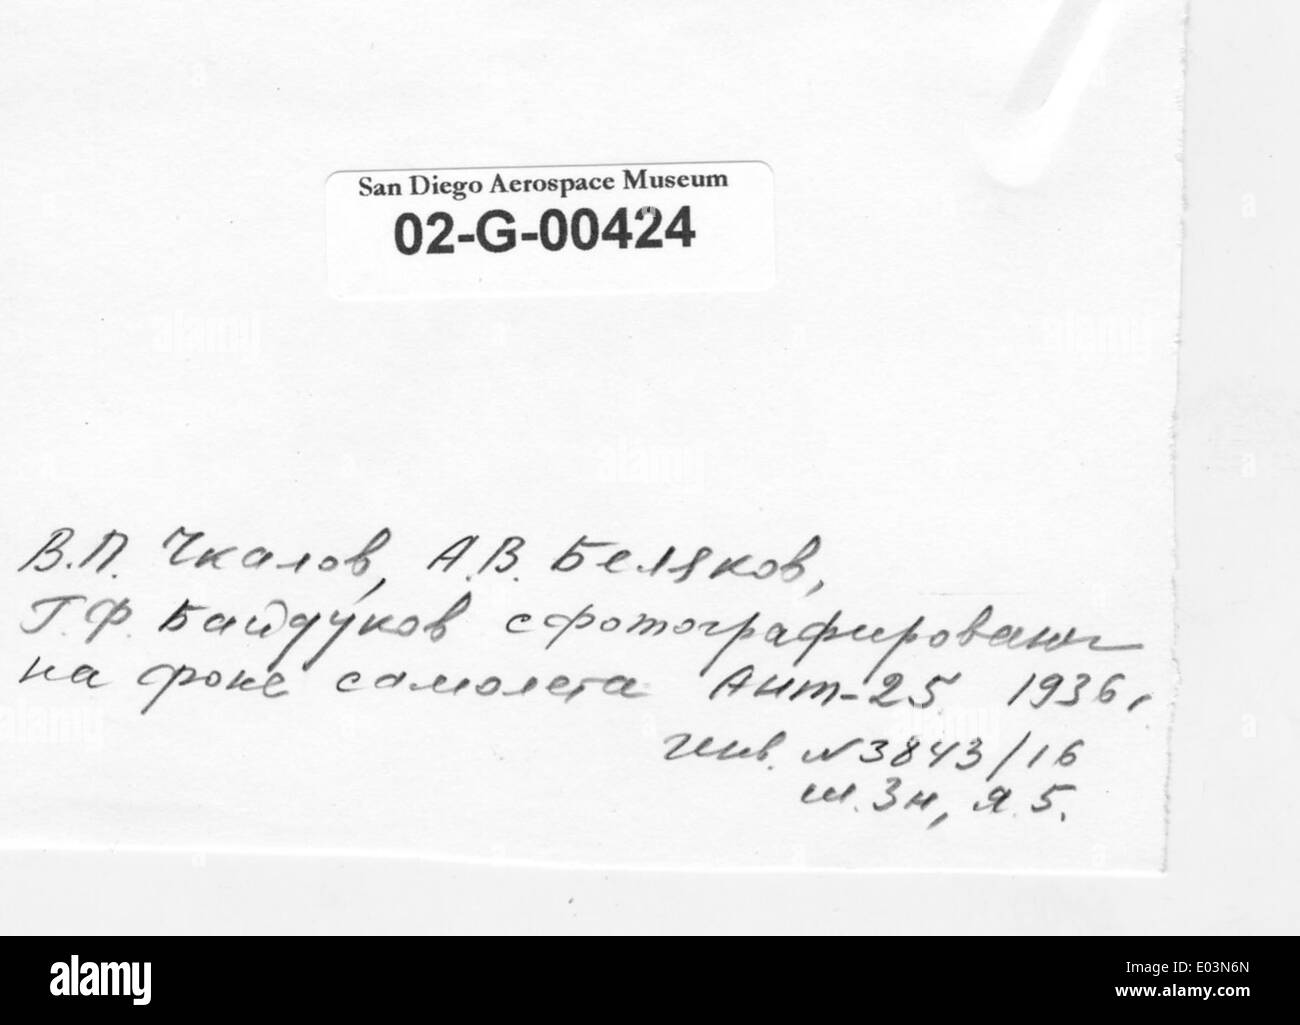 San Diego Aerospace Museum
02-G-00424
В.П. Чкалов, А.В. Беляков,
Г.Ф. Байдуков сфотографированы
на фоне самолета Ант-25 1936г.
инв. N3843/16
ш. 3н, я. 5.
alamy
Image ID: E03N6N
www.alamy.com